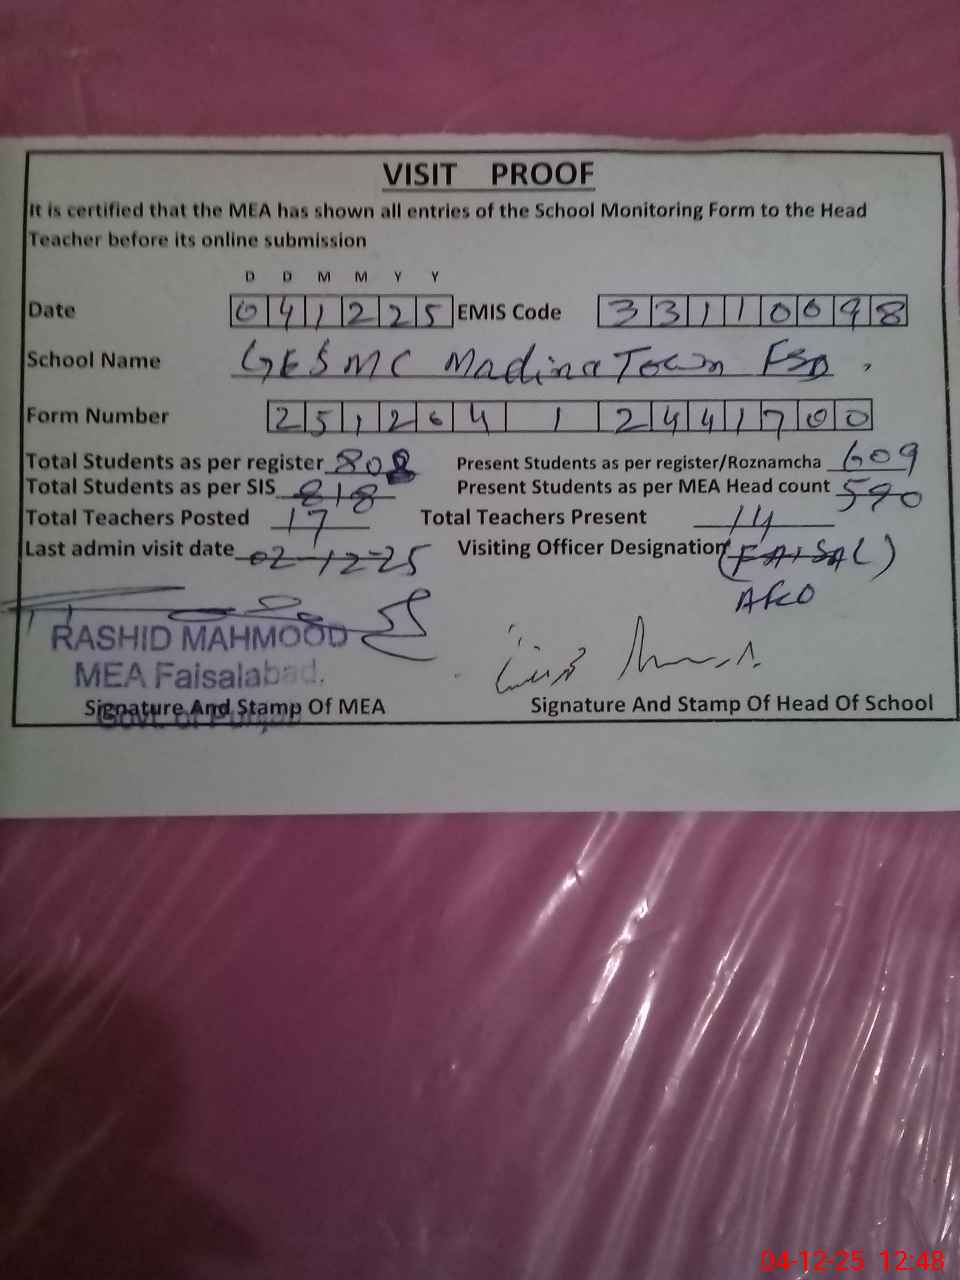 VISIT PROOF
It is certified that the MEA has shown all entries of the School Monitoring Form to the Head
Teacher before its online submission
D D M M Y Y
Date 0 4 1 2 2 5 EMIS Code 3 3 1 1 0 0 9 8
School Name GES MC Madina Town FSD.
Form Number 2 5 1 2 0 4 1 2 4 4 1 7 0 0
Total Students as per register 808 Present Students as per register/Roznamcha 609
Total Students as per SIS 818 Present Students as per MEA Head count 590
Total Teachers Posted 17 Total Teachers Present 14
Last admin visit date 02-12-25 Visiting Officer Designation (FAISAL)
RASHID MAHMOOD
MEA Faisalabad.
Signature And Stamp Of MEA Signature And Stamp Of Head Of School
Govt. of Punjab
04-12-25 12:48